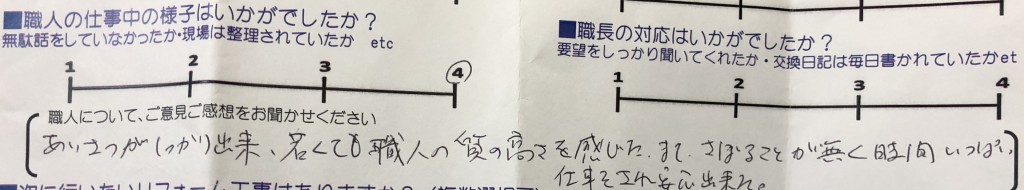 ■職人の仕事中の様子はいかがでしたか？
無駄話をしていなかったか・現場は整理されていたか etc
1 2 3 4
職人について、ご意見ご感想をお聞かせください
■職長の対応はいかがでしたか？
要望をしっかり聞いてくれたか・交換日記は毎日書かれていたかet
1 2 3 4
あいさつがしっかり出来、若くても職人の質の高さを感じた。また、さぼることが無く時間いっぱい、
仕事をされ安心出来た。
■次に行いたいリフォーム工事はありますか？（複数選択可）